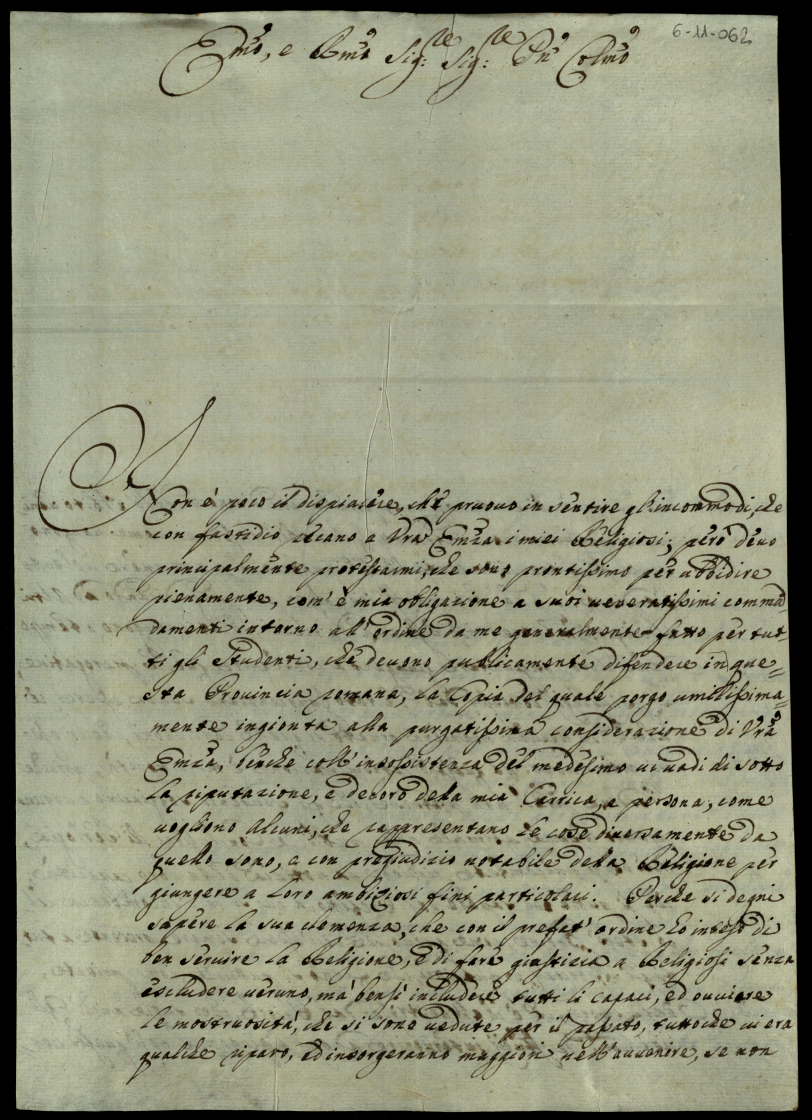 6-11-062
Emo, e Rmo Sig:re Sig:re Pne Colmo
Non è poco il dispiacere, che pruouo in sentire gl'incommodi, che
con fastidio recano a Vra Emza i miei Religiosi; però deuo
principalmente protestarmi, che sono prontissimo per ubbidire
pienamente, com'è mia obligazione a suoi ueneratissimi comman
damenti intorno all'ordine da me generalmente fatto per tut-
ti gli Studenti, che deuono publicamente difendere in que=
sta Prouincia romana, la Copia del quale porgo umilissima=
mente ingionta alla purgatissima considerazione di Vra
Emza, benche coll'insossistenza del medesimo ui uadi di sotto
la riputazione, e decoro della mia Carrica, e persona, come
uogliono alcuni, che rappresentano le cose diuersamente da
quello sono, e con pregiudizio notabile della Religione per
giungere a loro ambiziosi fini particolari. Perche si degni
sapere la sua clemenza, che con il prefat' ordine ho inteso di
ben seruire la Religione, e di fare giustizia a Religiosi senza
escludere ueruno, mà bensì includere tutti li capaci, ed ouuiare
le mostruosità, che si sono uedute per il passato, tuttoche ui era
qualche riparo, ed insorgeranno maggiori nell'auuenire, se non